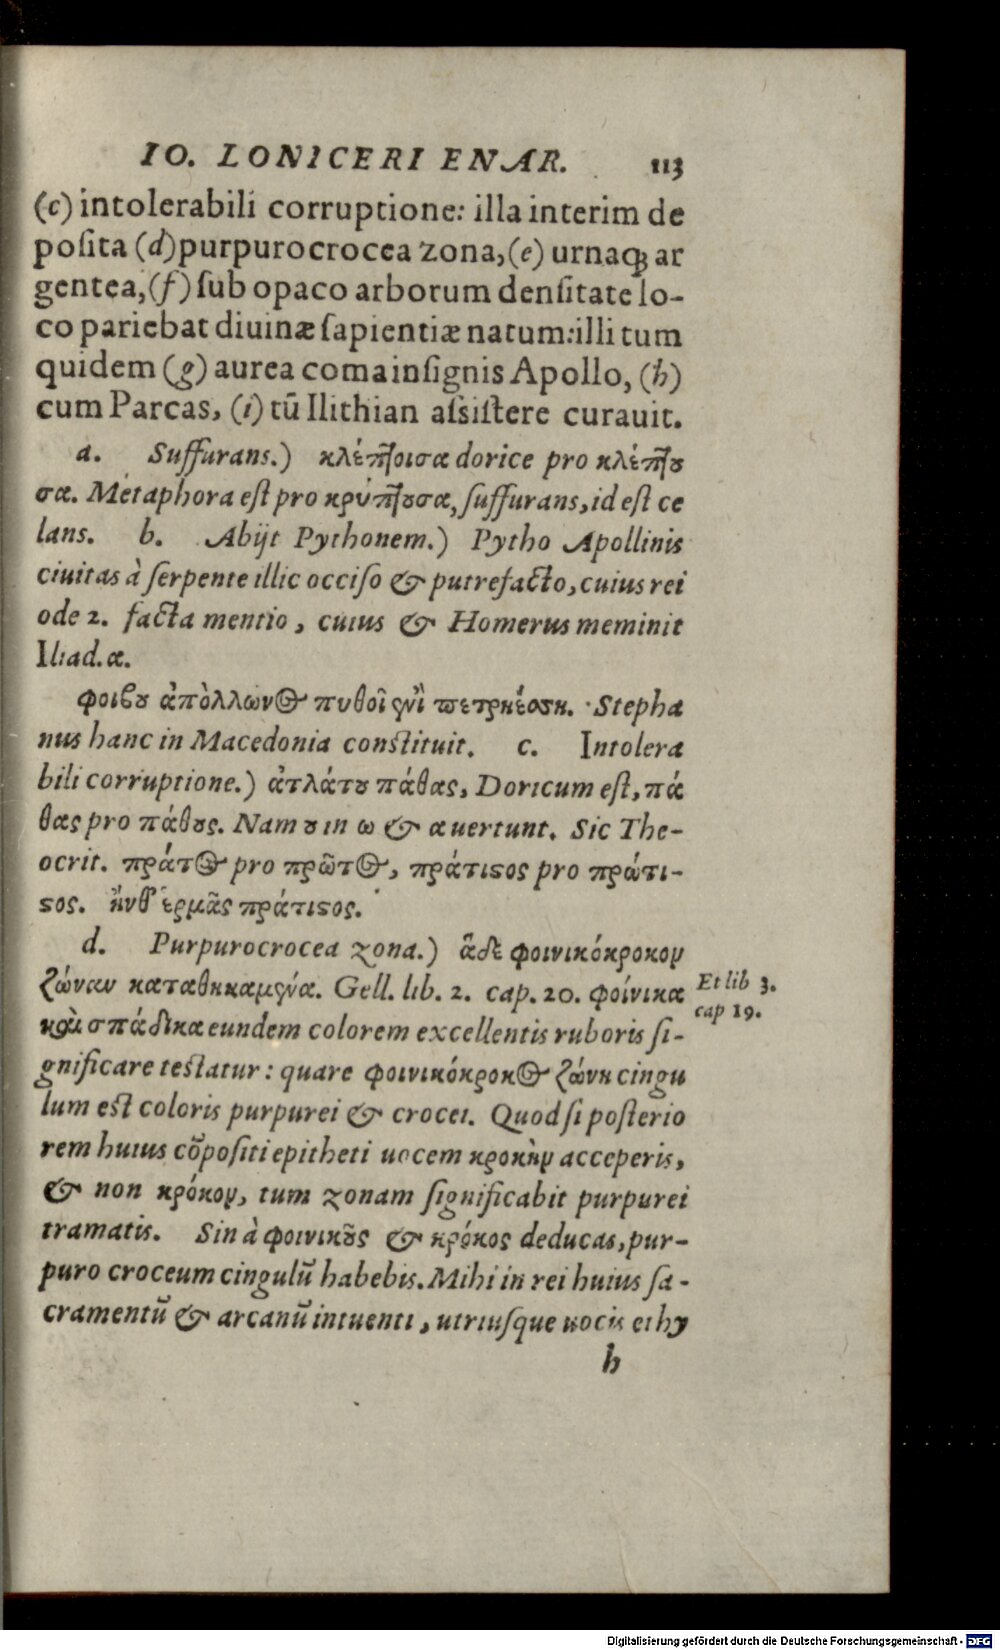 IO. LONICERI ENAR. 113
(c) intolerabili corruptione: illa interim de
posita (d) purpurocrocea zona, (e) urnaqꝫ ar
gentea, (f) sub opaco arborum densitate lo-
co pariebat diuinæ sapientiæ natum: illi tum
quidem (g) aurea coma insignis Apollo, (h)
cum Parcas, (i) tū Ilithian assistere curauit.
a. Suffurans.) κλέπτοισα dorice pro κλέπτου
σα. Metaphora est pro κρύπτουσα, suffurans, id est ce
lans. b. Abijt Pythonem.) Pytho Apollinis
ciuitas à serpente illic occiso & putrefacto, cuius rei
ode 2. facta mentio, cuius & Homerus meminit
Iliad. α.
φοίβου ἀπὸλλωνος πυθοῖ ἐνὶ πετρηέσσῃ. Stepha
nus hanc in Macedonia constituit. c. Intolera
bili corruptione.) ἀτλάτου πάθας, Doricum est, πά
θας pro πάθους. Nam ου in ω & α uertunt. Sic The-
ocrit. πράτος pro πρῶτος, πράτιστος pro πρώτι-
στος. ἤνθ' ἑρμᾶς πράτιστος.
d. Purpurocrocea zona.) ἅδε φοινικόκροκον
ζώναν καταθηκαμένα. Gell. lib. 2. cap. 20. φοίνικα
Et lib 3.
cap 19.
καὶ σπάδικα eundem colorem excellentis ruboris si-
gnificare testatur: quare φοινικόκροκος ζώνη cingu
lum est coloris purpurei & crocei. Quod si posterio
rem huius cōpositi epitheti uocem κροκὴν acceperis,
& non κρόκον, tum zonam significabit purpurei
tramatis. Sin à φοινικοῦς & κρόκος deducas, pur-
puro croceum cingulū habebis. Mihi in rei huius sa-
cramentū & arcanū intuenti, utriusque uocis ethy
h
Digitalisierung gefördert durch die Deutsche Forschungsgemeinschaft - DFG